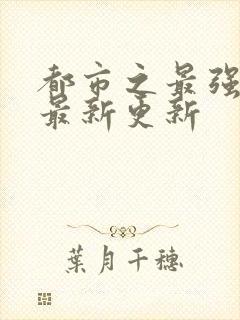 都市之最强
最新更新
葉月千穗